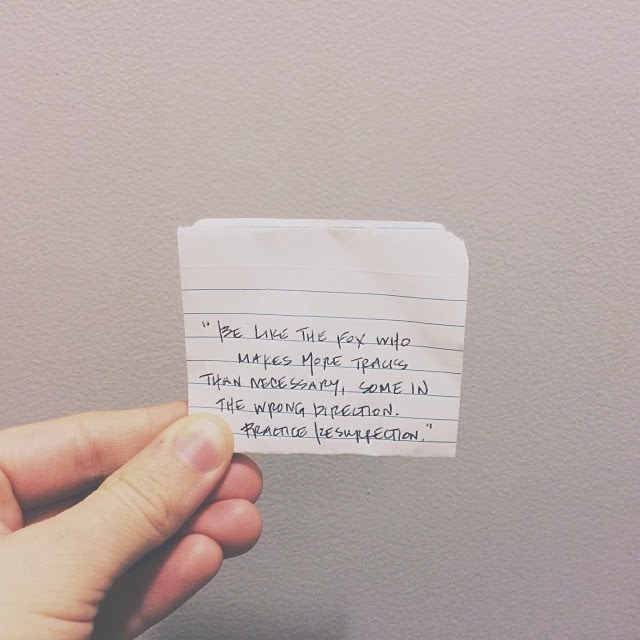 "BE LIKE THE FOX WHO
MAKES MORE TRACKS
THAN NECESSARY, SOME IN
THE WRONG DIRECTION.
PRACTICE RESURRECTION."